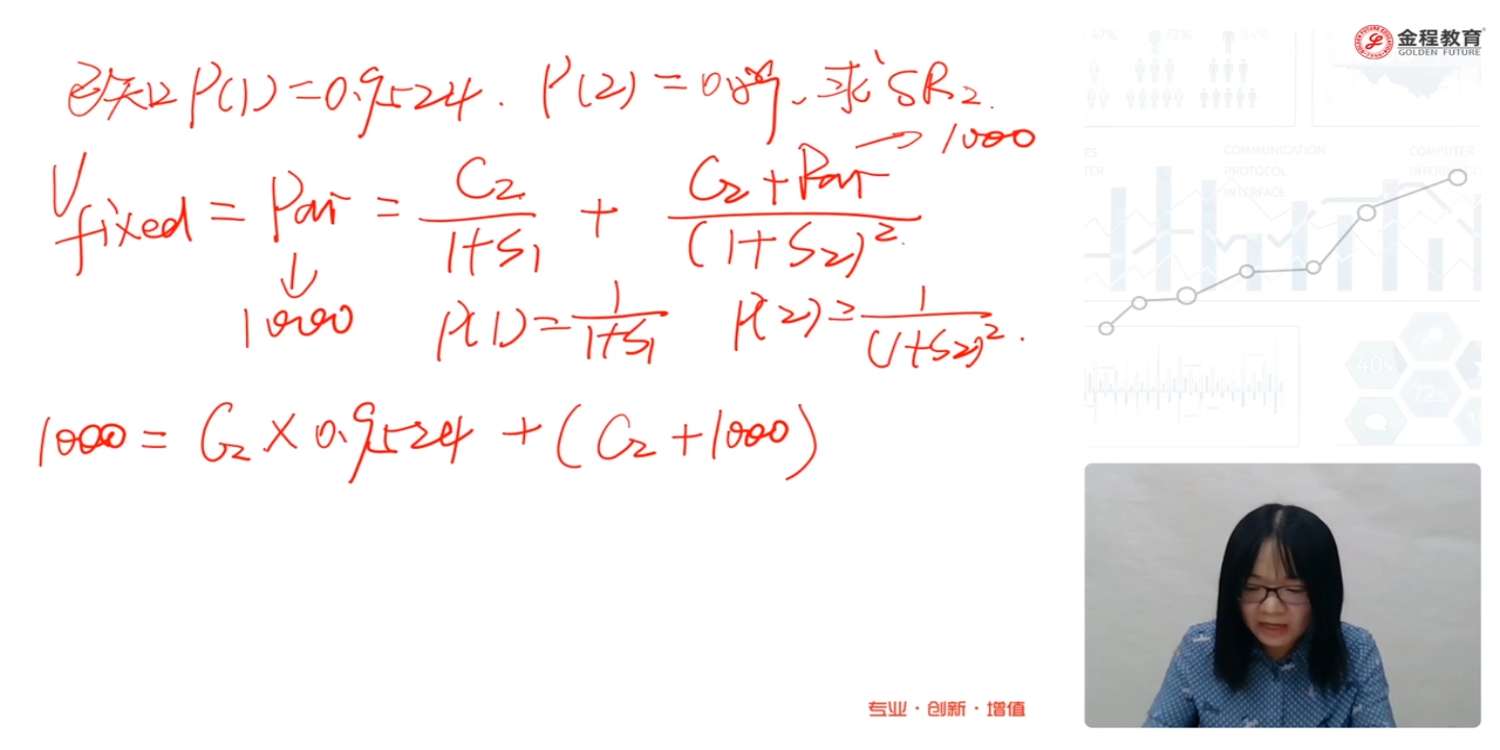 已知 P(1)=0.9524. P(2)=0.89、求 SR₂.
V_fixed = Par = C₂/(1+S₁) + (C₂+Par)/(1+S₂)² → 1000
↓
1000 P(1)=1/(1+S₁) P(2)=1/(1+S₂)².
1000 = C₂ × 0.9524 + (C₂+1000)
金程教育
GOLDEN FUTURE
47%
72%
COMMUNICATION
COMPUTER
PROTOCOL
INTERFACE
40%
72%
专业·创新·增值